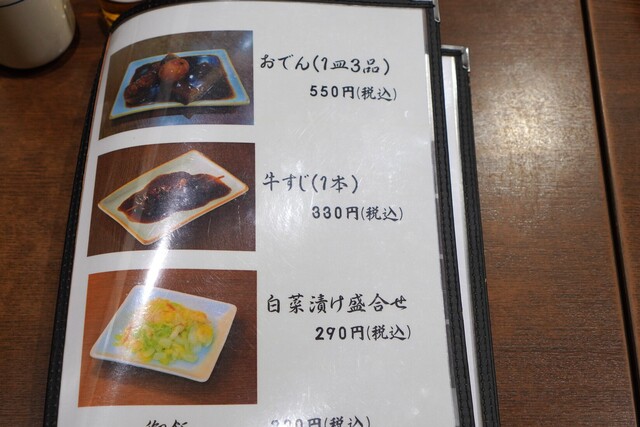 おでん(1皿3品)
550円(税込)
牛すじ(1本)
330円(税込)
白菜漬け盛合せ
290円(税込)
円(税込)